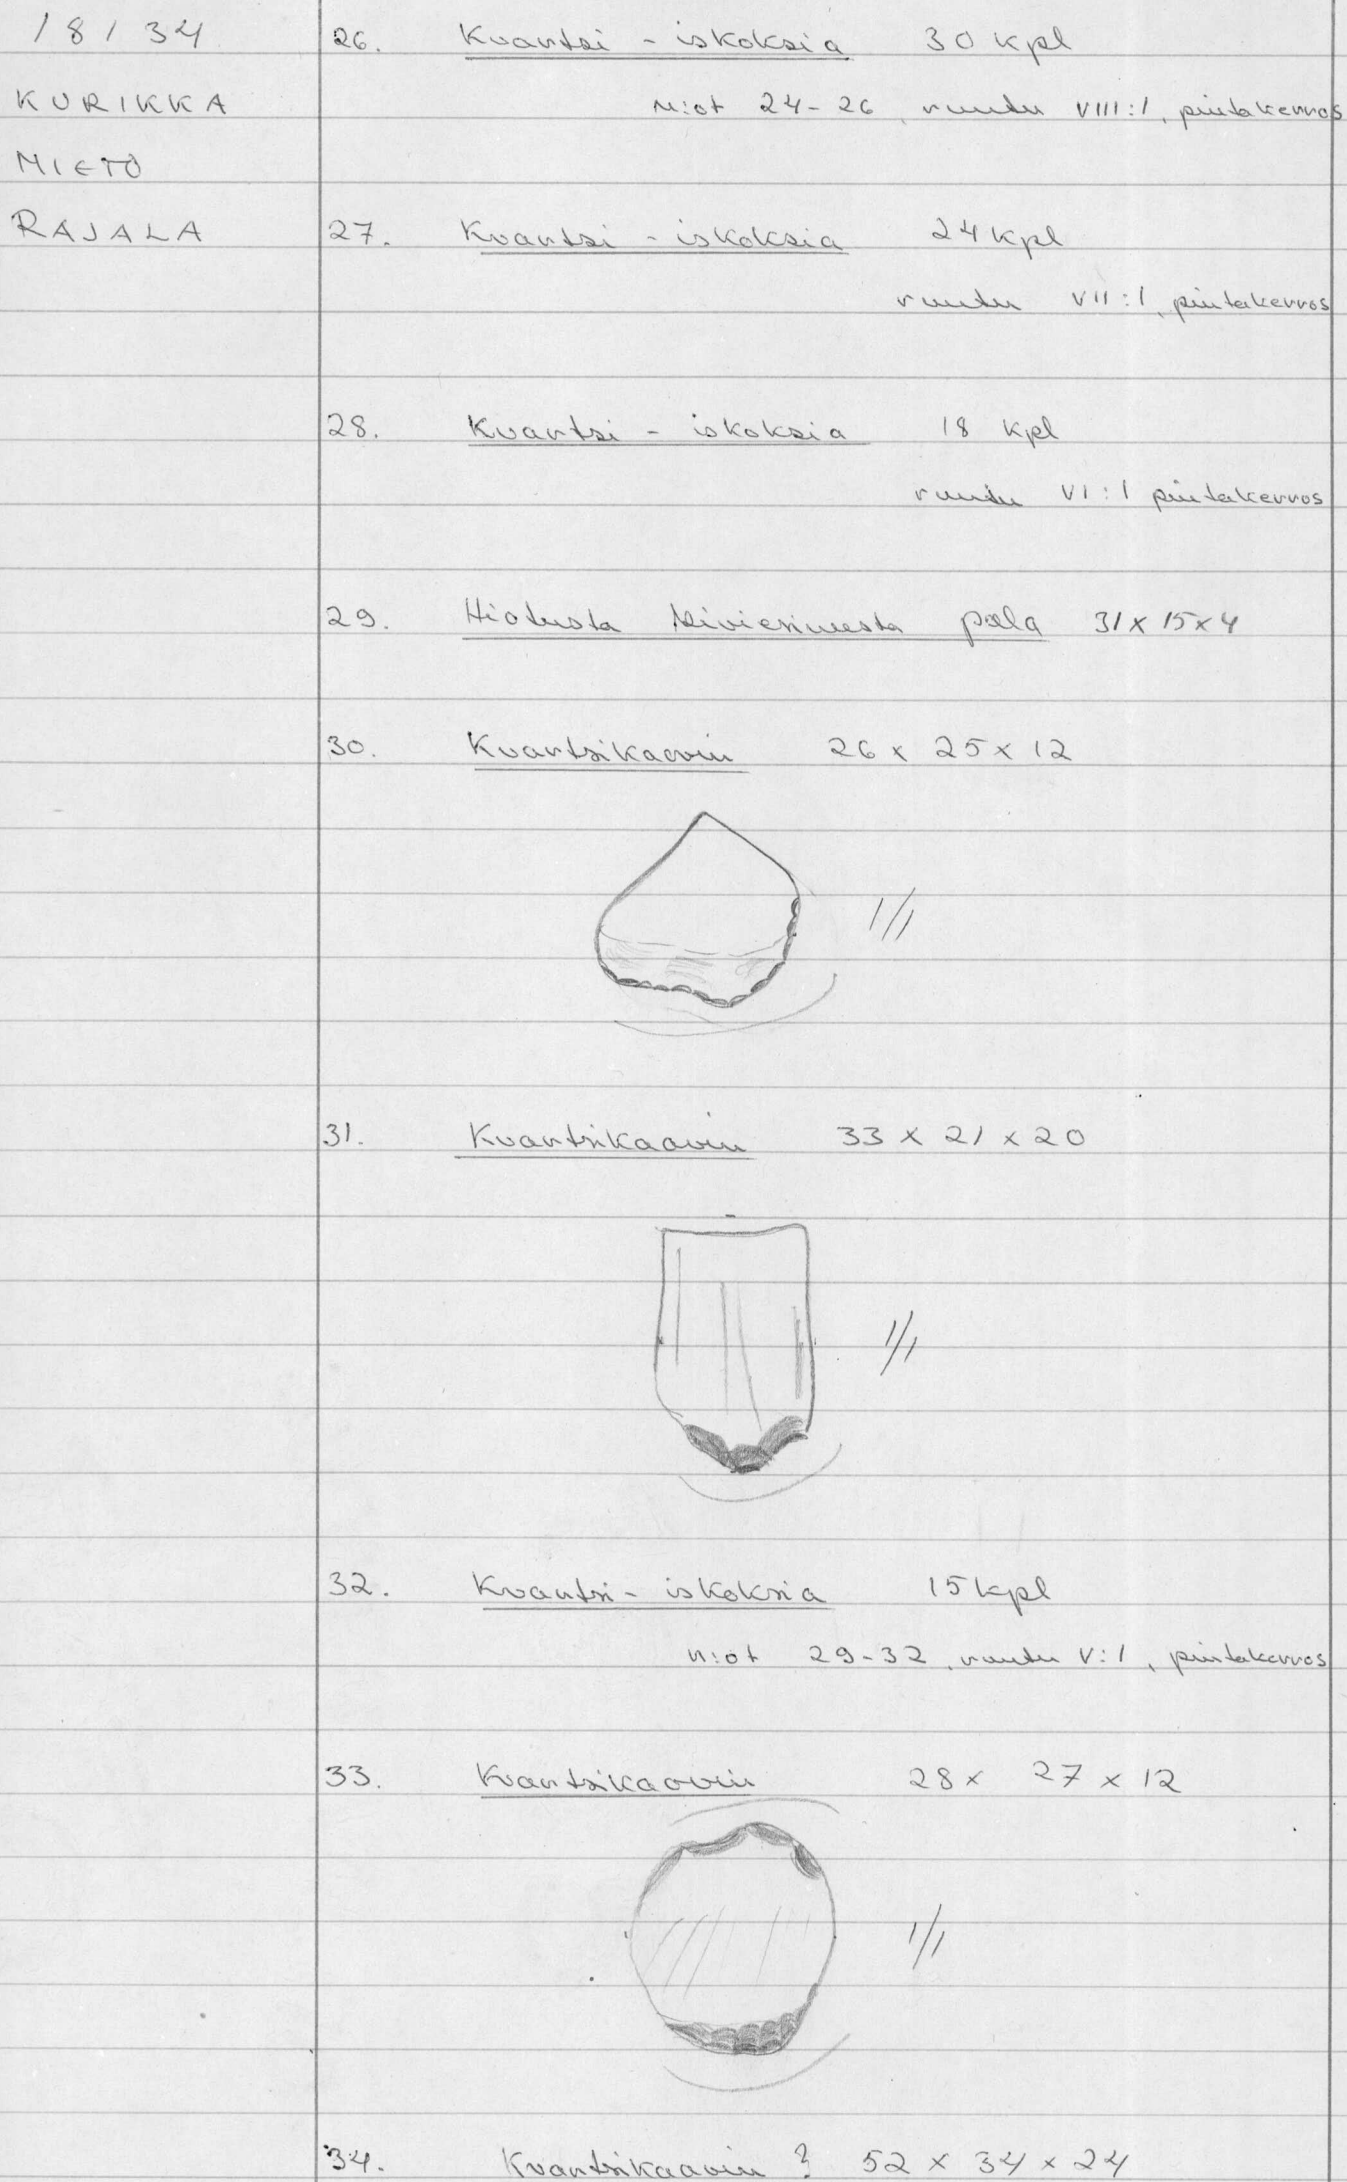 18134
KURIKKA
MIETO
RAJALA
26. Kvartsi - iskoksia 30 kpl
n:ot 24-26, ruutu VIII:1, pintakerros
27. Kvartsi - iskoksia 24 kpl
ruutu VII:1, pintakerros
28. Kvartsi - iskoksia 18 kpl
ruutu VI:1 pintakerros
29. Hiotusta kiviesineestä pala 31 x 15 x 4
30. Kvartsikaavin 26 x 25 x 12
1/1
31. Kvartsikaavin 33 x 21 x 20
1/1
32. Kvartsi - iskoksia 15 kpl
n:ot 29-32, ruutu V:1, pintakerros
33. Kvartsikaavin 28 x 27 x 12
1/1
34. Kvartsikaavin ? 52 x 34 x 24